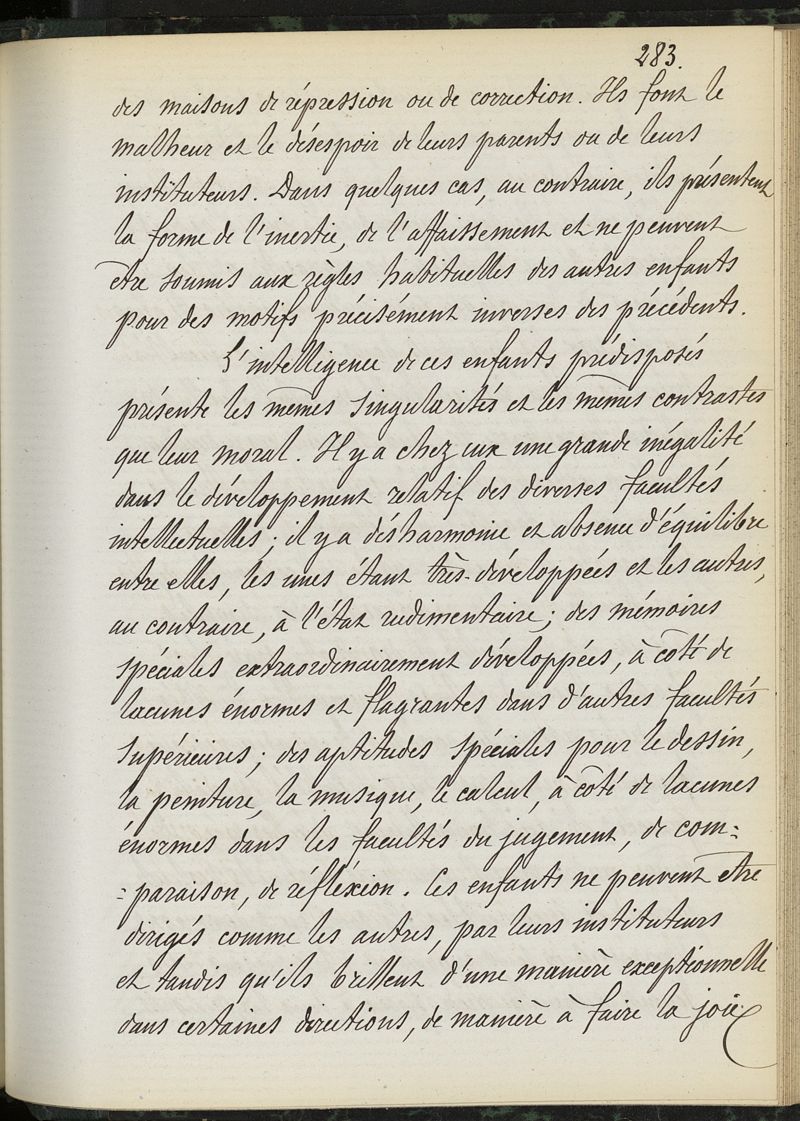 283.
des maisons de répression ou de correction. Ils font le
malheur et le désespoir de leurs parents ou de leurs
instituteurs. Dans quelques cas, au contraire, ils présentent
la forme de l'inertie, de l'affaissement et ne peuvent
être soumis aux règles habituelles des autres enfants
pour des motifs précisément inverses des précédents.
L'intelligence de ces enfants prédisposés
présente les mêmes singularités et les mêmes contrastes
que leur moral. Il y a chez eux une grande inégalité
dans le développement relatif des diverses facultés
intellectuelles ; il y a désharmonie et absence d'équilibre
entre elles, les unes étant très-développées et les autres,
au contraire, à l'état rudimentaire ; des mémoires
spéciales extraordinairement développées, à côté de
lacunes énormes et flagrantes dans d'autres facultés
supérieures ; des aptitudes spéciales pour le dessin,
la peinture, la musique, le calcul, à côté de lacunes
énormes dans les facultés du jugement, de com=
=paraison, de réfléxion. Ces enfants ne peuvent être
dirigés comme les autres, par leurs instituteurs
et tandis qu'ils brillent d'une manière exceptionnelle
dans certaines directions, de manière à faire la joie